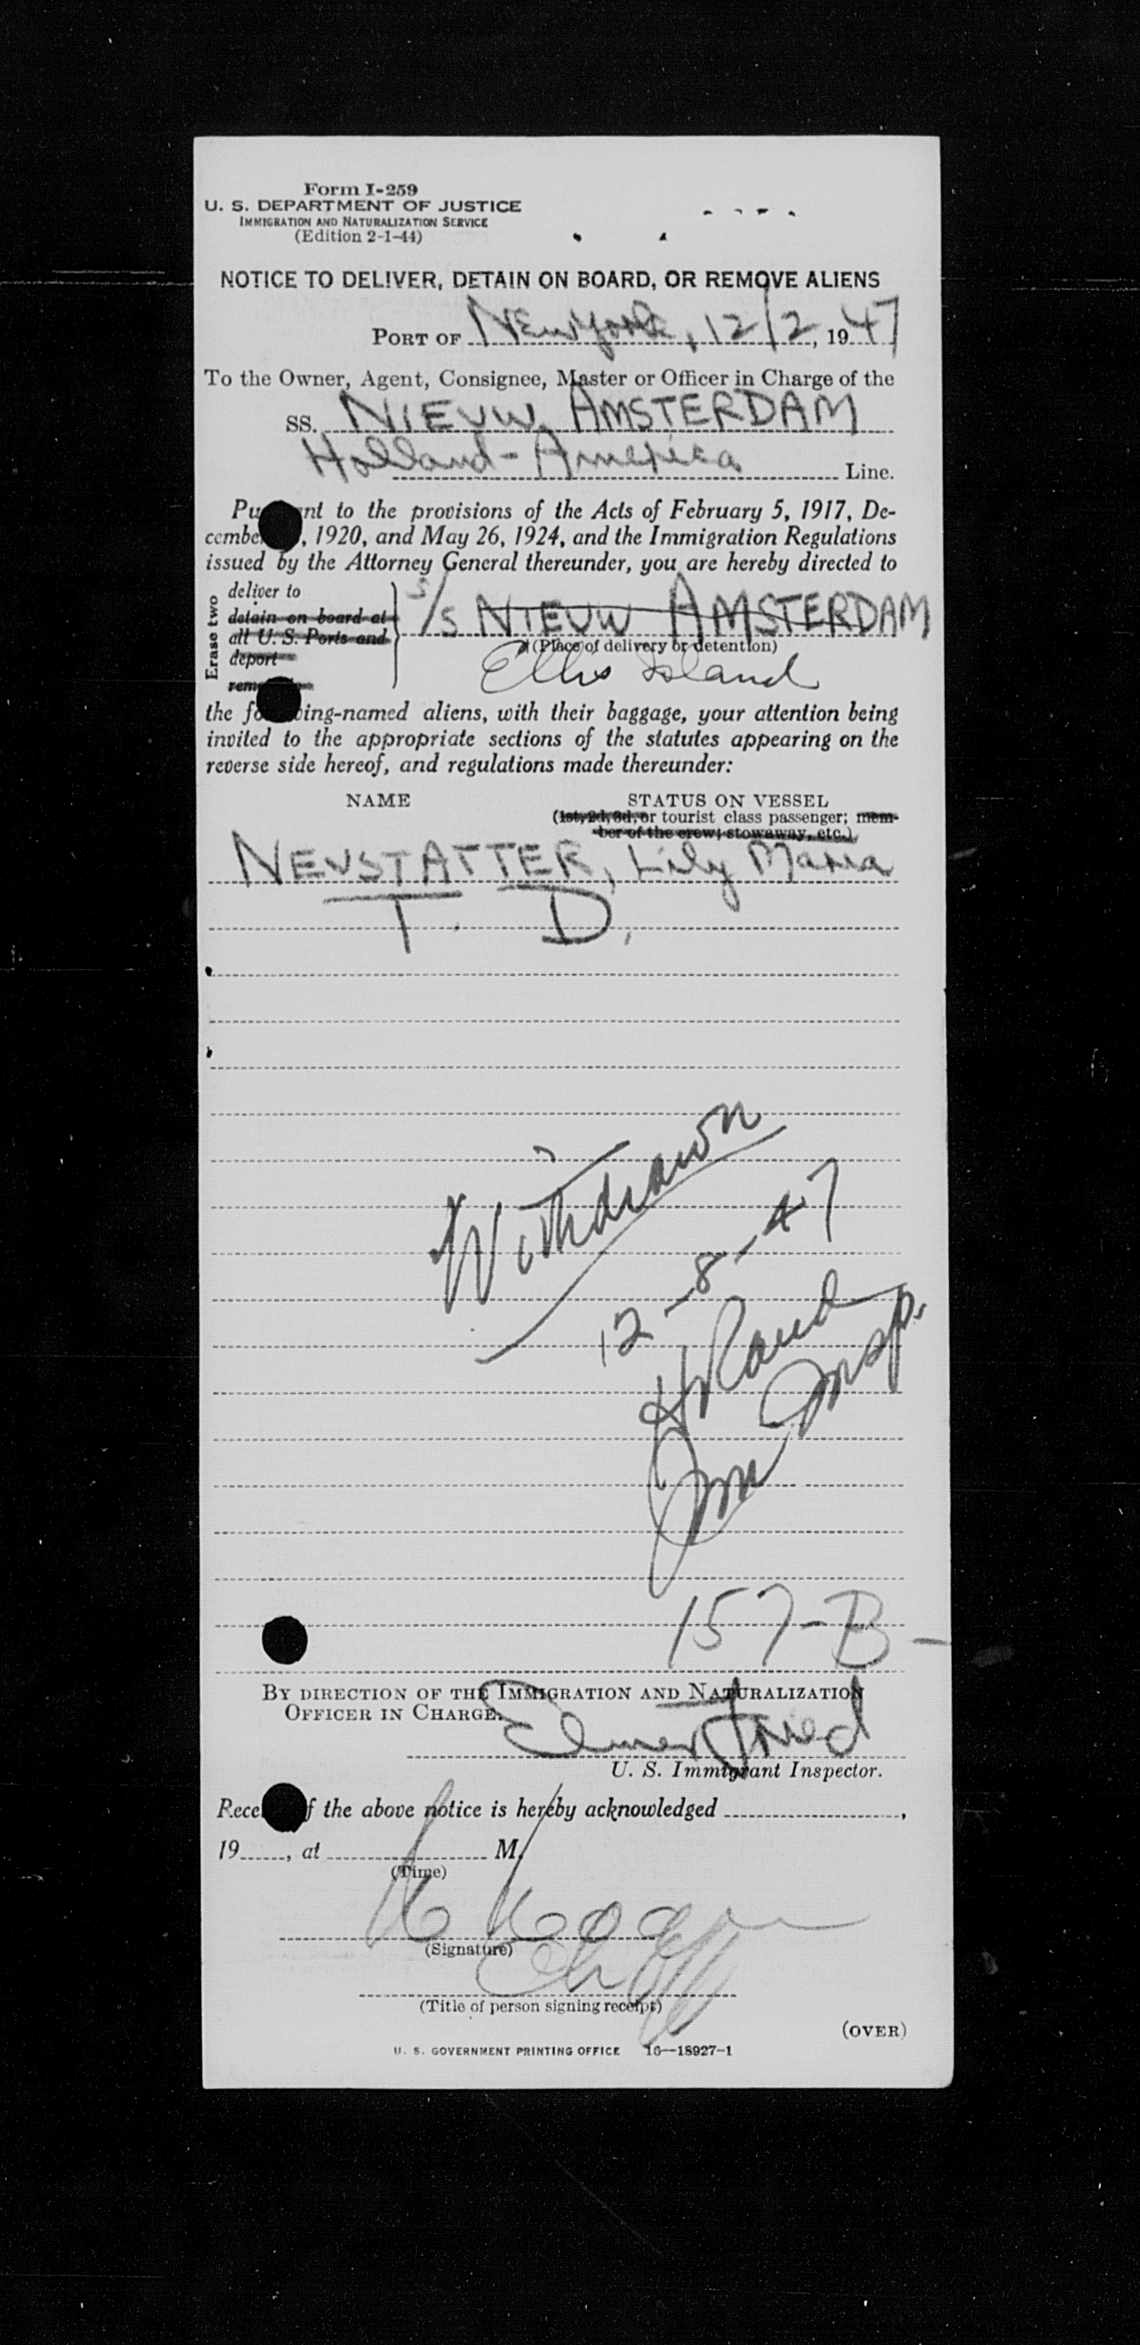 Form I-259
U. S. DEPARTMENT OF JUSTICE
IMMIGRATION AND NATURALIZATION SERVICE
(Edition 2-1-44)
NOTICE TO DELIVER, DETAIN ON BOARD, OR REMOVE ALIENS
PORT OF New York, 12/2, 1947
To the Owner, Agent, Consignee, Master or Officer in Charge of the
SS. NIEUW AMSTERDAM
Holland-America Line.
nt to the provisions of the Acts of February 5, 1917, De-
cembe , 1920, and May 26, 1924, and the Immigration Regulations
issued by the Attorney General thereunder, you are hereby directed to
Erase two
deliver to
detain on board at
all U. S. Ports and
deport
rem
S/S NIEUW AMSTERDAM
(Place of delivery or detention)
Ellis Island
the fo ing-named aliens, with their baggage, your attention being
invited to the appropriate sections of the statutes appearing on the
reverse side hereof, and regulations made thereunder:
NAME STATUS ON VESSEL
(1st, 2d, 3d, or tourist class passenger; mem-
ber of the crew; stowaway, etc.)
NEUSTATTER, Lily Maria
T. D.
Withdrawn
12-8-47
Rand
Imm Insp.
157-B-
BY DIRECTION OF THE IMMIGRATION AND NATURALIZATION
OFFICER IN CHARGE.
Elmer Fried
U. S. Immigrant Inspector.
Rece f the above notice is hereby acknowledged ,
19 , at M.
(Time)
(Signature)
(Title of person signing receipt)
(OVER)
U. S. GOVERNMENT PRINTING OFFICE 16—18927-1